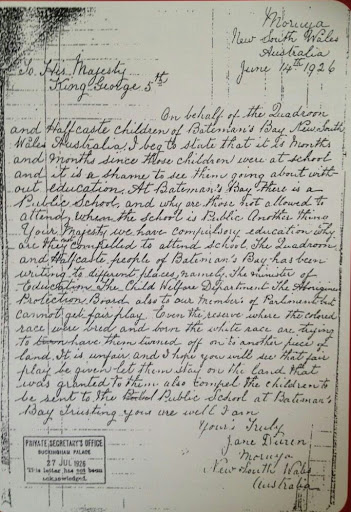 Moruya
New South Wales
Australia
June 14th 1926
To His Majesty
King George 5th
On behalf of the Quadroon
and Halfcaste children of Bateman's Bay New South
Wales Australia. I beg to state that it 20 months
and months since those children were at school
and it is a shame to see them going about with-
out education. At Bateman's Bay there is a
Public School, and why are those not allowed to
attend, when the school is Public Another thing
Your Majesty we have compulsory education Why
are they compelled to attend school. The Quadroon
and Halfcaste, people of Bateman's Bay has been
writing to different places, namely. The minister of
Education The Child Welfare Department The Aborigines
Protection Board also to our Member's of Parliament but
cannot get fair play Even the reserve where the colored
race were bred and born the white race are trying
to have them turned off on to another piece of
land. It is unfair and I hope you will see that fair
play be given let them stay on the land that
was granted to them also compel the children to
be sent to the Public School at Bateman's
Bay Trusting you are well I am
Your's Truly
Jane Duren
Moruya
New South Wales
Australia
PRIVATE SECRETARY'S OFFICE
BUCKINGHAM PALACE
27 JUL 1926
This letter has not been
acknowledged.